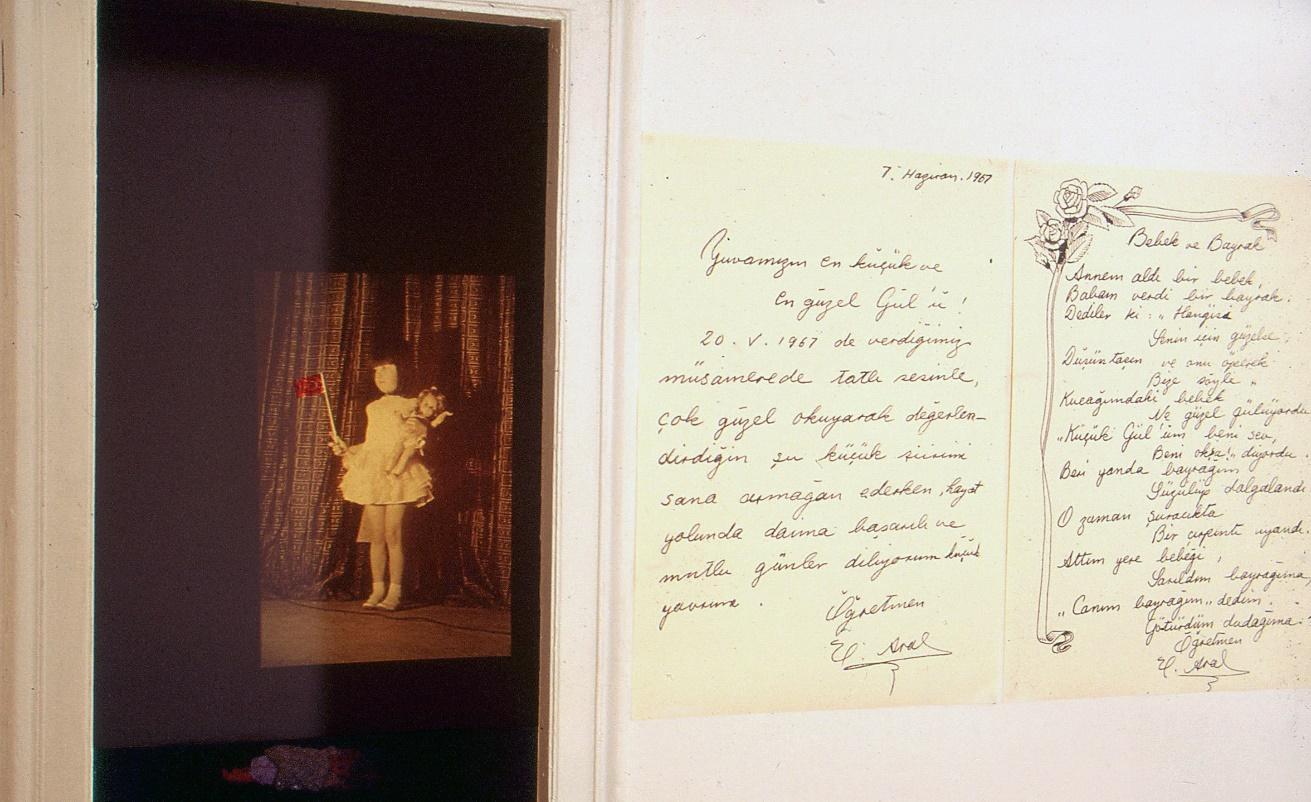 7. Haziran.1967
Yuvamızın en küçük ve
en güzel Gül'ü!
20.V.1967 de verdiğimiz
müsamerede tatlı sesinle,
çok güzel okuyarak değerlen-
dirdiğin şu küçük şiirimi
sana armağan ederken, hayat
yolunda daima başarılı ve
mutlu günler diliyorum küçük
yavrum.
Öğretmen
Aral
Bebek ve Bayrak
Annem aldı bir bebek,
Babam verdi bir bayrak.
Dediler ki: "Hangisi
Senin için güzelse,
Düşün taşın ve onu öperek
Bize söyle"
Kucağımdaki bebek
Ne güzel gülüyordu
"Küçük Gül'üm beni sev,
Beni okşa!" diyordu.
Beri yanda bayrağım
Süzülüp dalgalandı
O zaman şuracıkta
Bir çarpıntı uyandı.
Attım yere bebeği,
Sarıldım bayrağıma,
"Canım bayrağım" dedim.
Götürdüm dudağıma.
Öğretmen
Aral